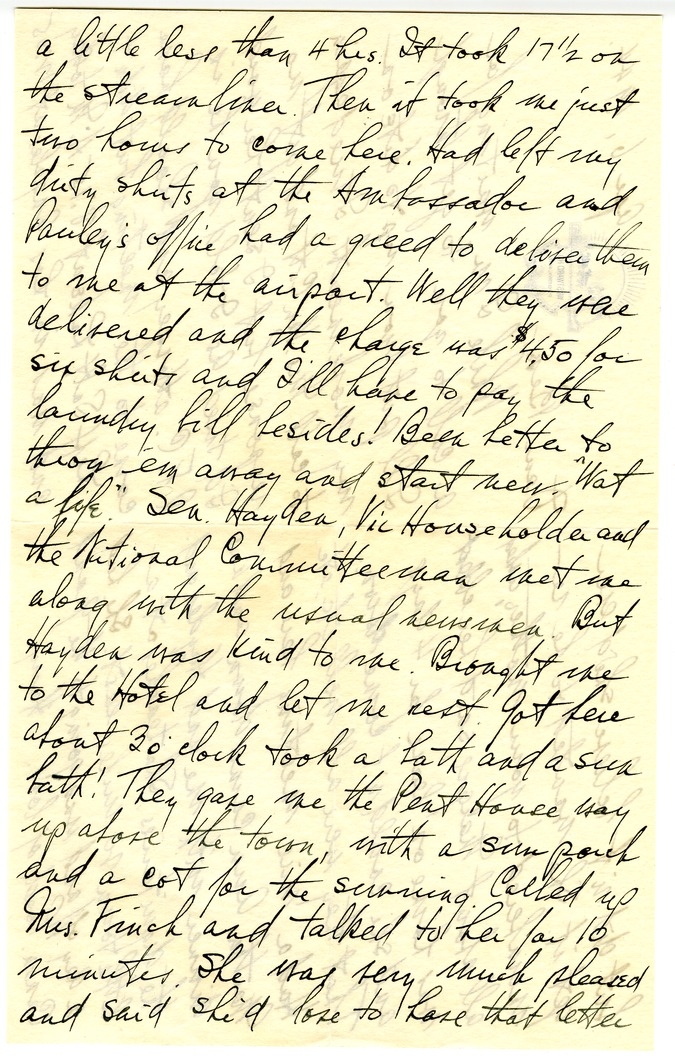 a little less than 4 hrs. It took 17 1/2 on
the streamliner. Then it took me just
two hours to come here. Had left my
dirty shirts at the Ambassador and
Pauley's office had agreed to deliver them
to me at the airport. Well they were
delivered and the charge was $4.50 for
six shirts and I'll have to pay the
laundry bill besides! Been better to
throw 'em away and start new. "Wat
a life." Sen. Hayden, Vic Householder and
the National Committeeman met me
along with the usual newsmen. But
Hayden was kind to me. Brought me
to the Hotel and let me rest. Got here
about 3 o'clock took a bath and a sun
bath! They gave me the Pent House way
up above the town, with a sun porch
and a cot for the sunning. Called up
Mrs. Finch and talked to her for 10
minutes. She was very much pleased
and said she'd love to have that letter